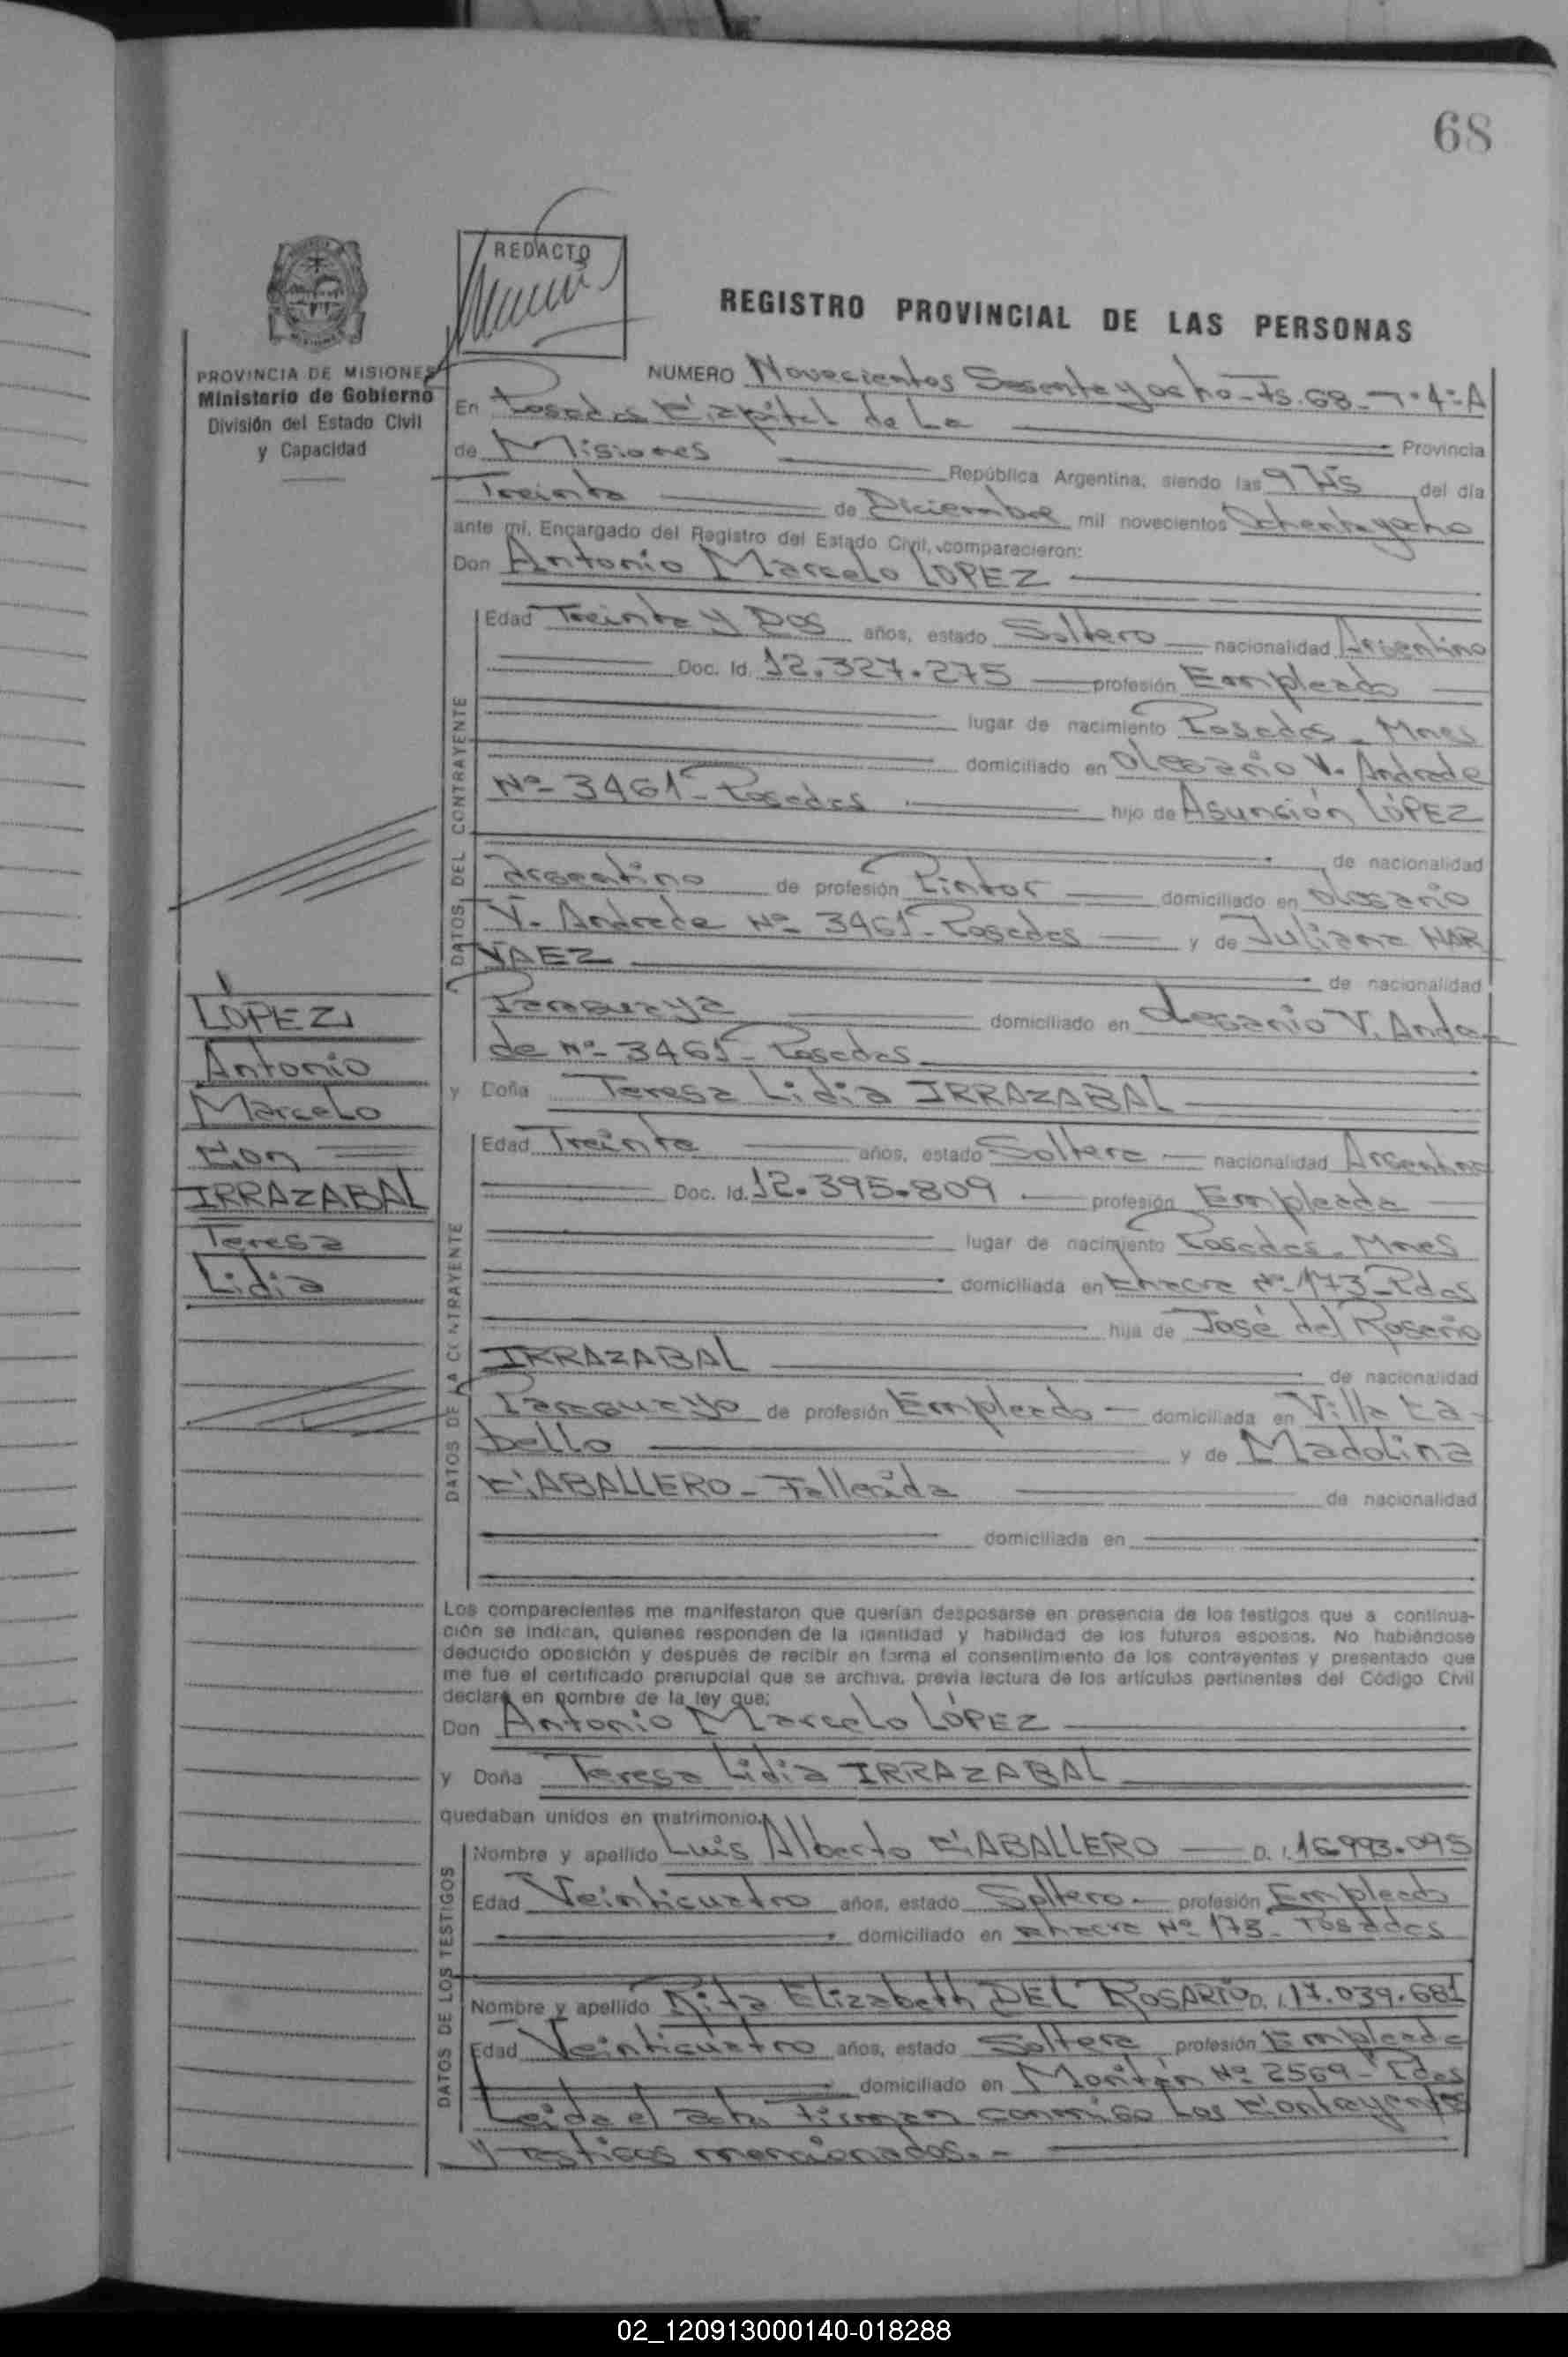 68
REDACTO
REGISTRO PROVINCIAL DE LAS PERSONAS
PROVINCIA DE MISIONES
Ministerio de Gobierno
División del Estado Civil
y Capacidad
NUMERO Novecientos Sesenta y ocho - Fs. 68 - Tº 4º A
En Posadas Capital de La Provincia
de Misiones República Argentina, siendo las 9 Hs del día
Treinta de Diciembre mil novecientos Ochenta y ocho
ante mí, Encargado del Registro del Estado Civil, comparecieron:
Don Antonio Marcelo LOPEZ
DATOS DEL CONTRAYENTE
Edad Treinta y Dos años, estado Soltero nacionalidad Argentino
Doc. Id. 12.327.275 profesión Empleado
lugar de nacimiento Posadas - Mnes
domiciliado en Olegario V. Andrade
Nº 3461 - Posadas hijo de Asunción LÓPEZ
de nacionalidad
Argentino de profesión Pintor domiciliado en Olegario
V. Andrade Nº 3461 - Posadas y de Juliana NAR
VAEZ de nacionalidad
Paraguaya domiciliado en Olegario V. Andra-
de Nº 3461 - Posadas
LÓPEZ,
Antonio
Marcelo
Con
IRRAZABAL
Teresa
Lidia
y Doña Teresa Lidia IRRAZABAL
DATOS DE LA CONTRAYENTE
Edad Treinta años, estado Soltera nacionalidad Argentina
Doc. Id. 12.395.809 profesión Empleada
lugar de nacimiento Posadas - Mnes
domiciliada en Chacra Nº 173 - Pdas
hija de José del Rosario
IRRAZABAL de nacionalidad
Paraguayo de profesión Empleado domiciliada en Villa Ca-
bello y de Madolina
CABALLERO - Fallecida de nacionalidad
domiciliada en
Los comparecientes me manifestaron que querían desposarse en presencia de los testigos que a continua-
ción se indican, quienes responden de la identidad y habilidad de los futuros esposos. No habiéndose
deducido oposición y después de recibir en forma el consentimiento de los contrayentes y presentado que
me fue el certificado prenupcial que se archiva, previa lectura de los artículos pertinentes del Código Civil
declaro en nombre de la ley que:
Don Antonio Marcelo LÓPEZ
y Doña Teresa Lidia IRRAZABAL
quedaban unidos en matrimonio.
DATOS DE LOS TESTIGOS
Nombre y apellido Luis Alberto CABALLERO D. I. 16.993.095
Edad Veinticuatro años, estado Soltero - profesión Empleado
domiciliado en Chacra Nº 173 - Posadas
Nombre y apellido Rita Elizabeth DEL ROSARIO D. I. 17.039.681
Edad Veinticuatro años, estado Soltera profesión Empleada
domiciliado en Nº 2569 - Pdas
Leida el acta firman conmigo Los Contrayentes
y testigos mencionados. -
02_120913000140-018288